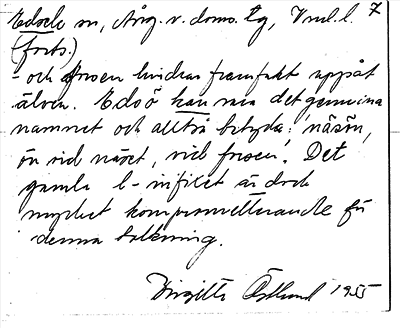 Edsele sn, Ång. v. doms. tg, Vnl. l. 7
(forts.)
- och frosen hindrar framfart uppåt
älven. Edsö kan vara det genuina
namnet och alltså betyda: 'näsön,
ön vid näset, vid forsen'. Det
gamla l-infixet är dock
mycket komprometterande för
denna tolkning.
Birgitta Östlund 1955